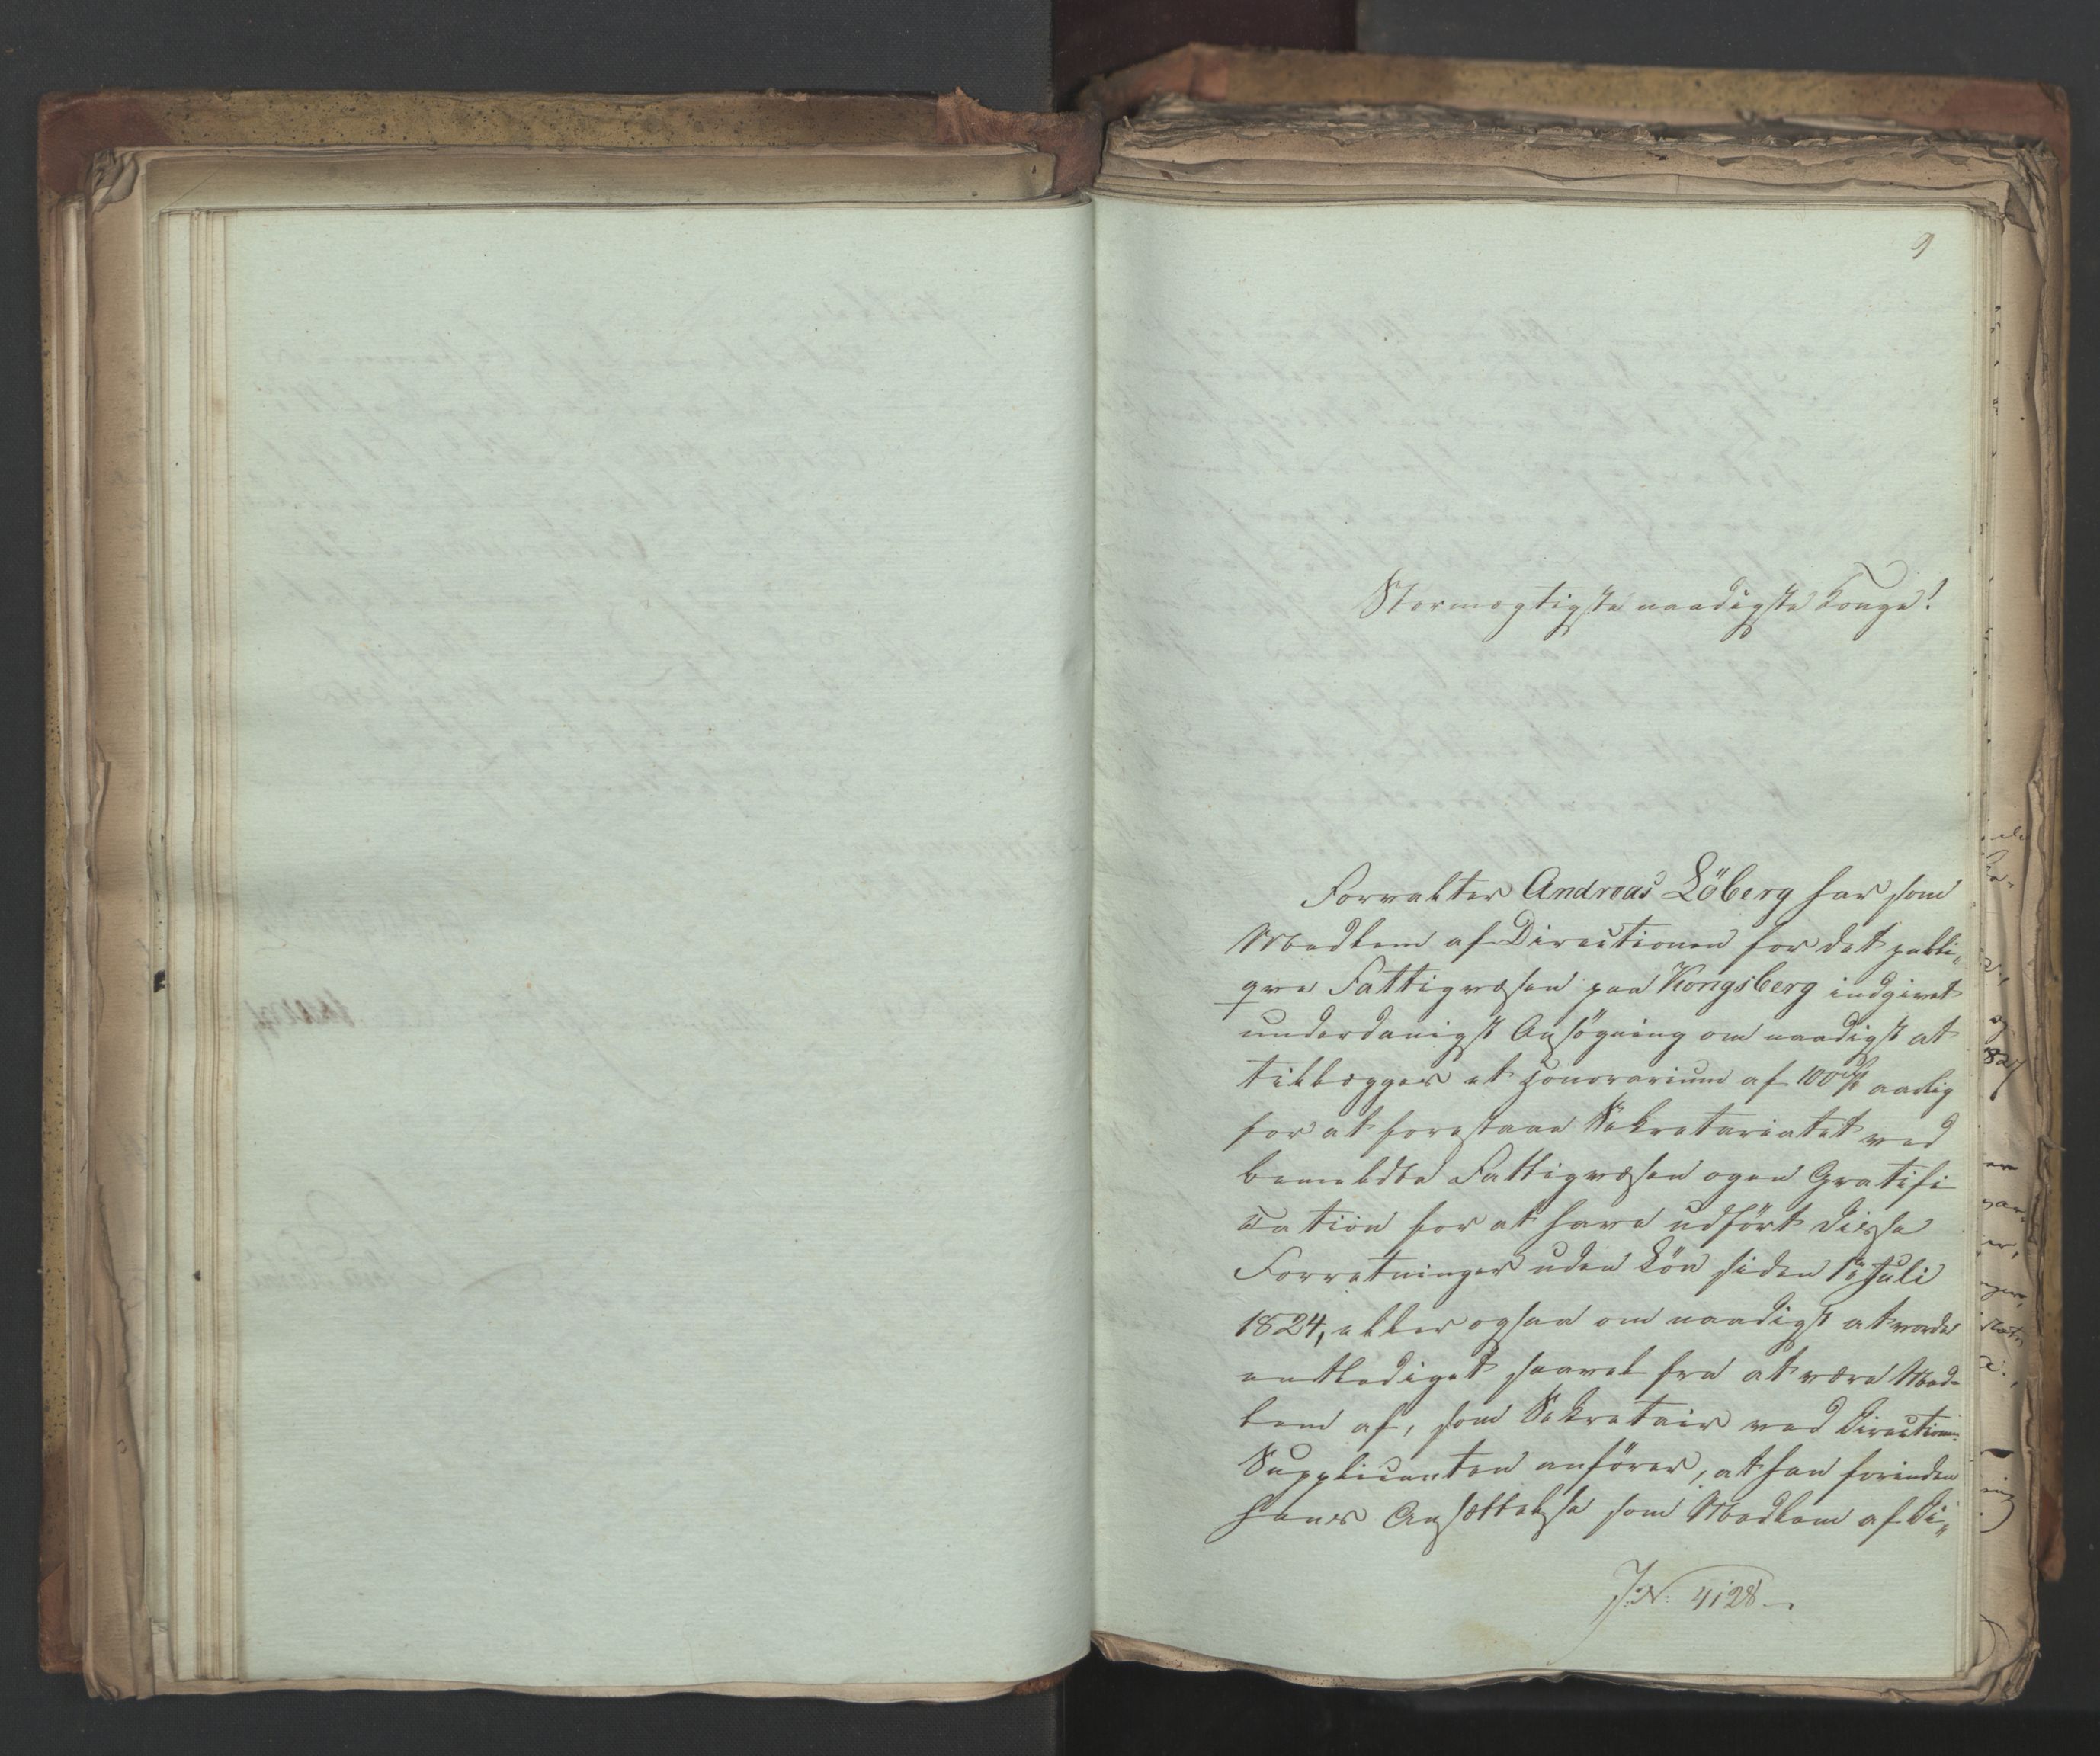 9
Stormægtigste naadigste Konge!
Forvalter Andreas Löberg har som
Medlem af Directionen for det publi„
qve Fattigvæsen paa Kongsberg indgivet
underdanigst Ansögning om naadigst at
tillægges et Honorarium af 100 Spd aarlig
for at forestaae Sekretariatet ved
bemeldte Fattigvæsen og en Gratifi
cation for at have udfört disse
Forretninger uden Lön siden 1ste Juli
1824, eller ogsaa om naadigst at vorde
entlediget saavel fra at være Med-
lem af, som Sekretair ved Directionen.
Supplicanten anförer, at han forinden
hans Ansættelse som Medlem af Di„
J:N: 4128